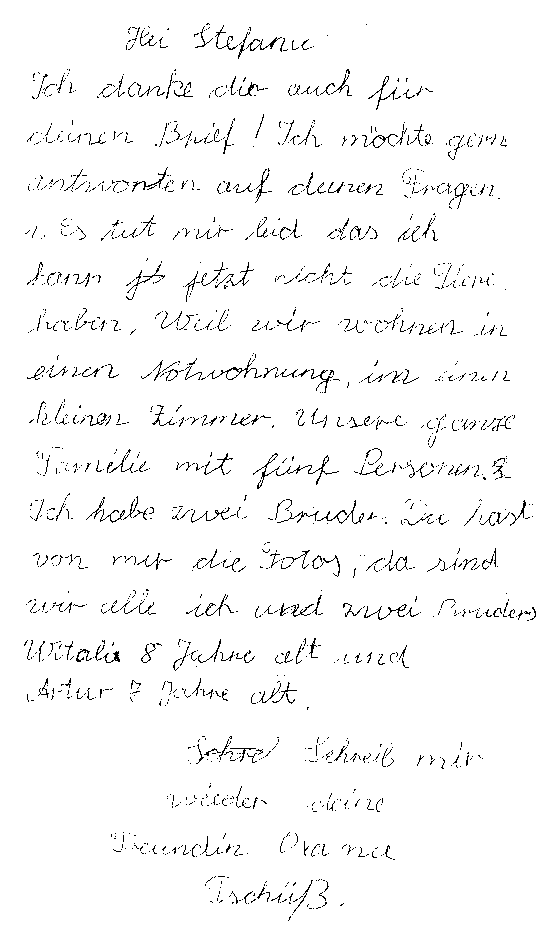 Hei Stefanie
Ich danke dir auch für
deinen Brief! Ich möchte gern
antworten auf deinen Fragen.
1. Es tut mir leid das ich
kann jetzt nicht die Tiere
haben, Weil wir wohnen in
einen Notwohnung, im einen
kleinen Zimmer. Unsere ganze
Familie mit fünf Personen.
Ich habe zwei Bruder. Du hast
von mir die Fotos, da sind
wir alle ich und zwei Bruders
Witali 8 Jahre alt und
Artur 7 Jahre alt.
Schreib mir
wieder deine
Freundin
Tschüß.